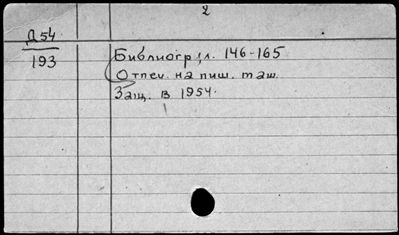 2
Д 54
193
Библиогр: л. 146-165
Отпеч. на пиш. маш.
Защ. в 1954.